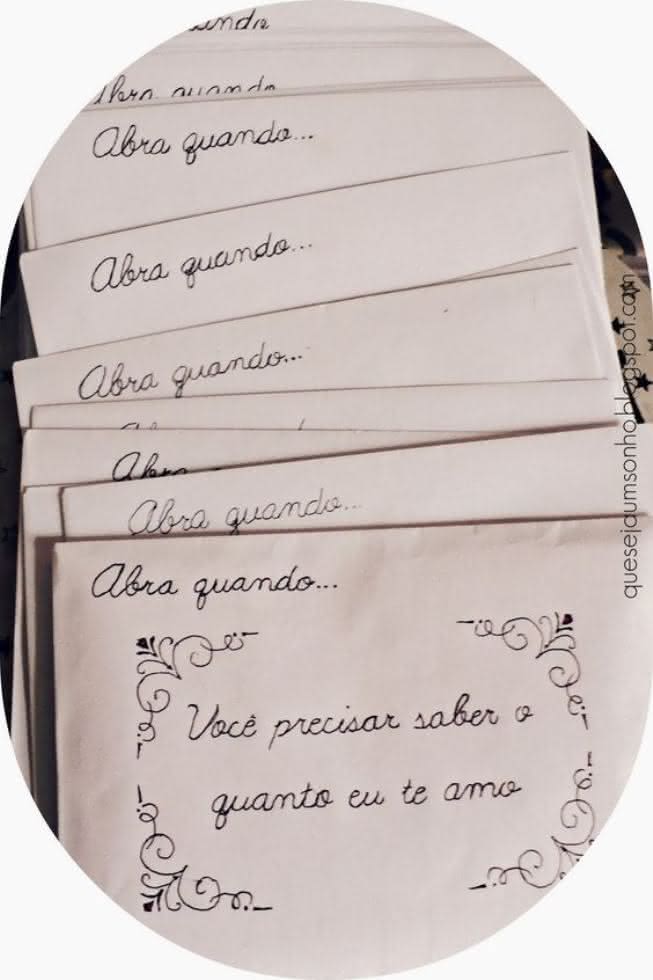 Abra quando
Abra quando...
Abra quando...
Abra quando...
Abra
Abra quando...
Abra quando...
Você precisar saber o
quanto eu te amo
quesejaumsonho.blogspot.com